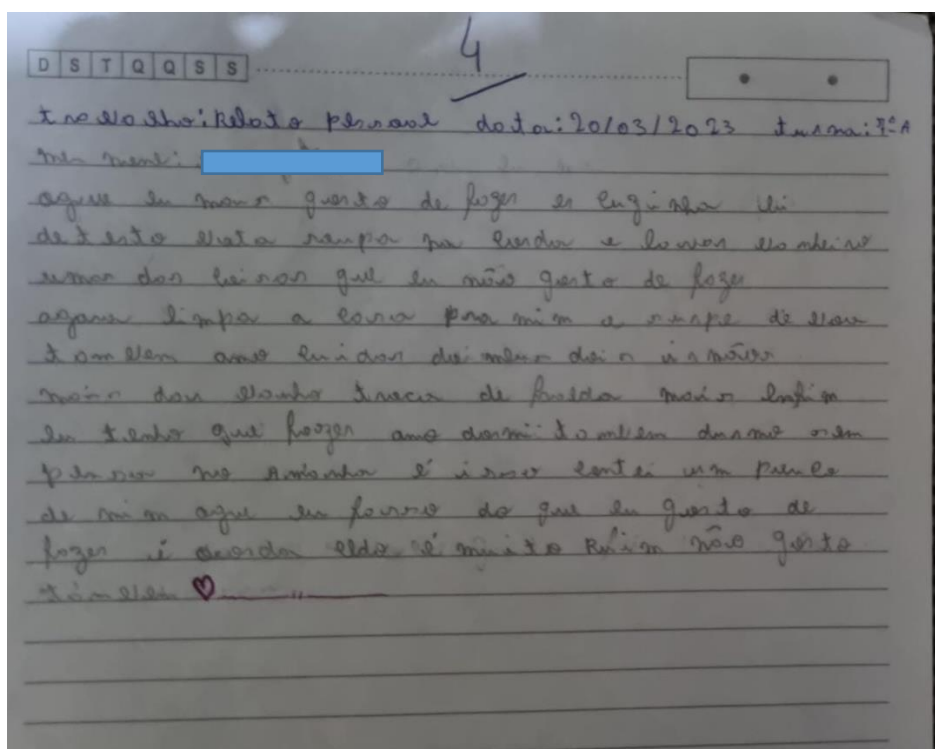 4
D S T Q Q S S
trabalho: Relato pessoal data: 20/03/2023 turma: 7º A
meu nome:
aque eu mais gosto de fazer es
detesto bata roupa na corda e lavar banheiro
umas das coisas que eu não gosto de fazer
agora limpa a casa pra mim e
tambem amo cuidar dos meus dois irmãos
mais dou banho troca de fralda mais enfim
eu tenho que foazer amo dormi tombem durmo sem
pensar no Amanha é isso contei um pouco
de mim aque eu do que eu gosto de
fozer é acorda cldo é muito Ruim não gosto
tâmbem